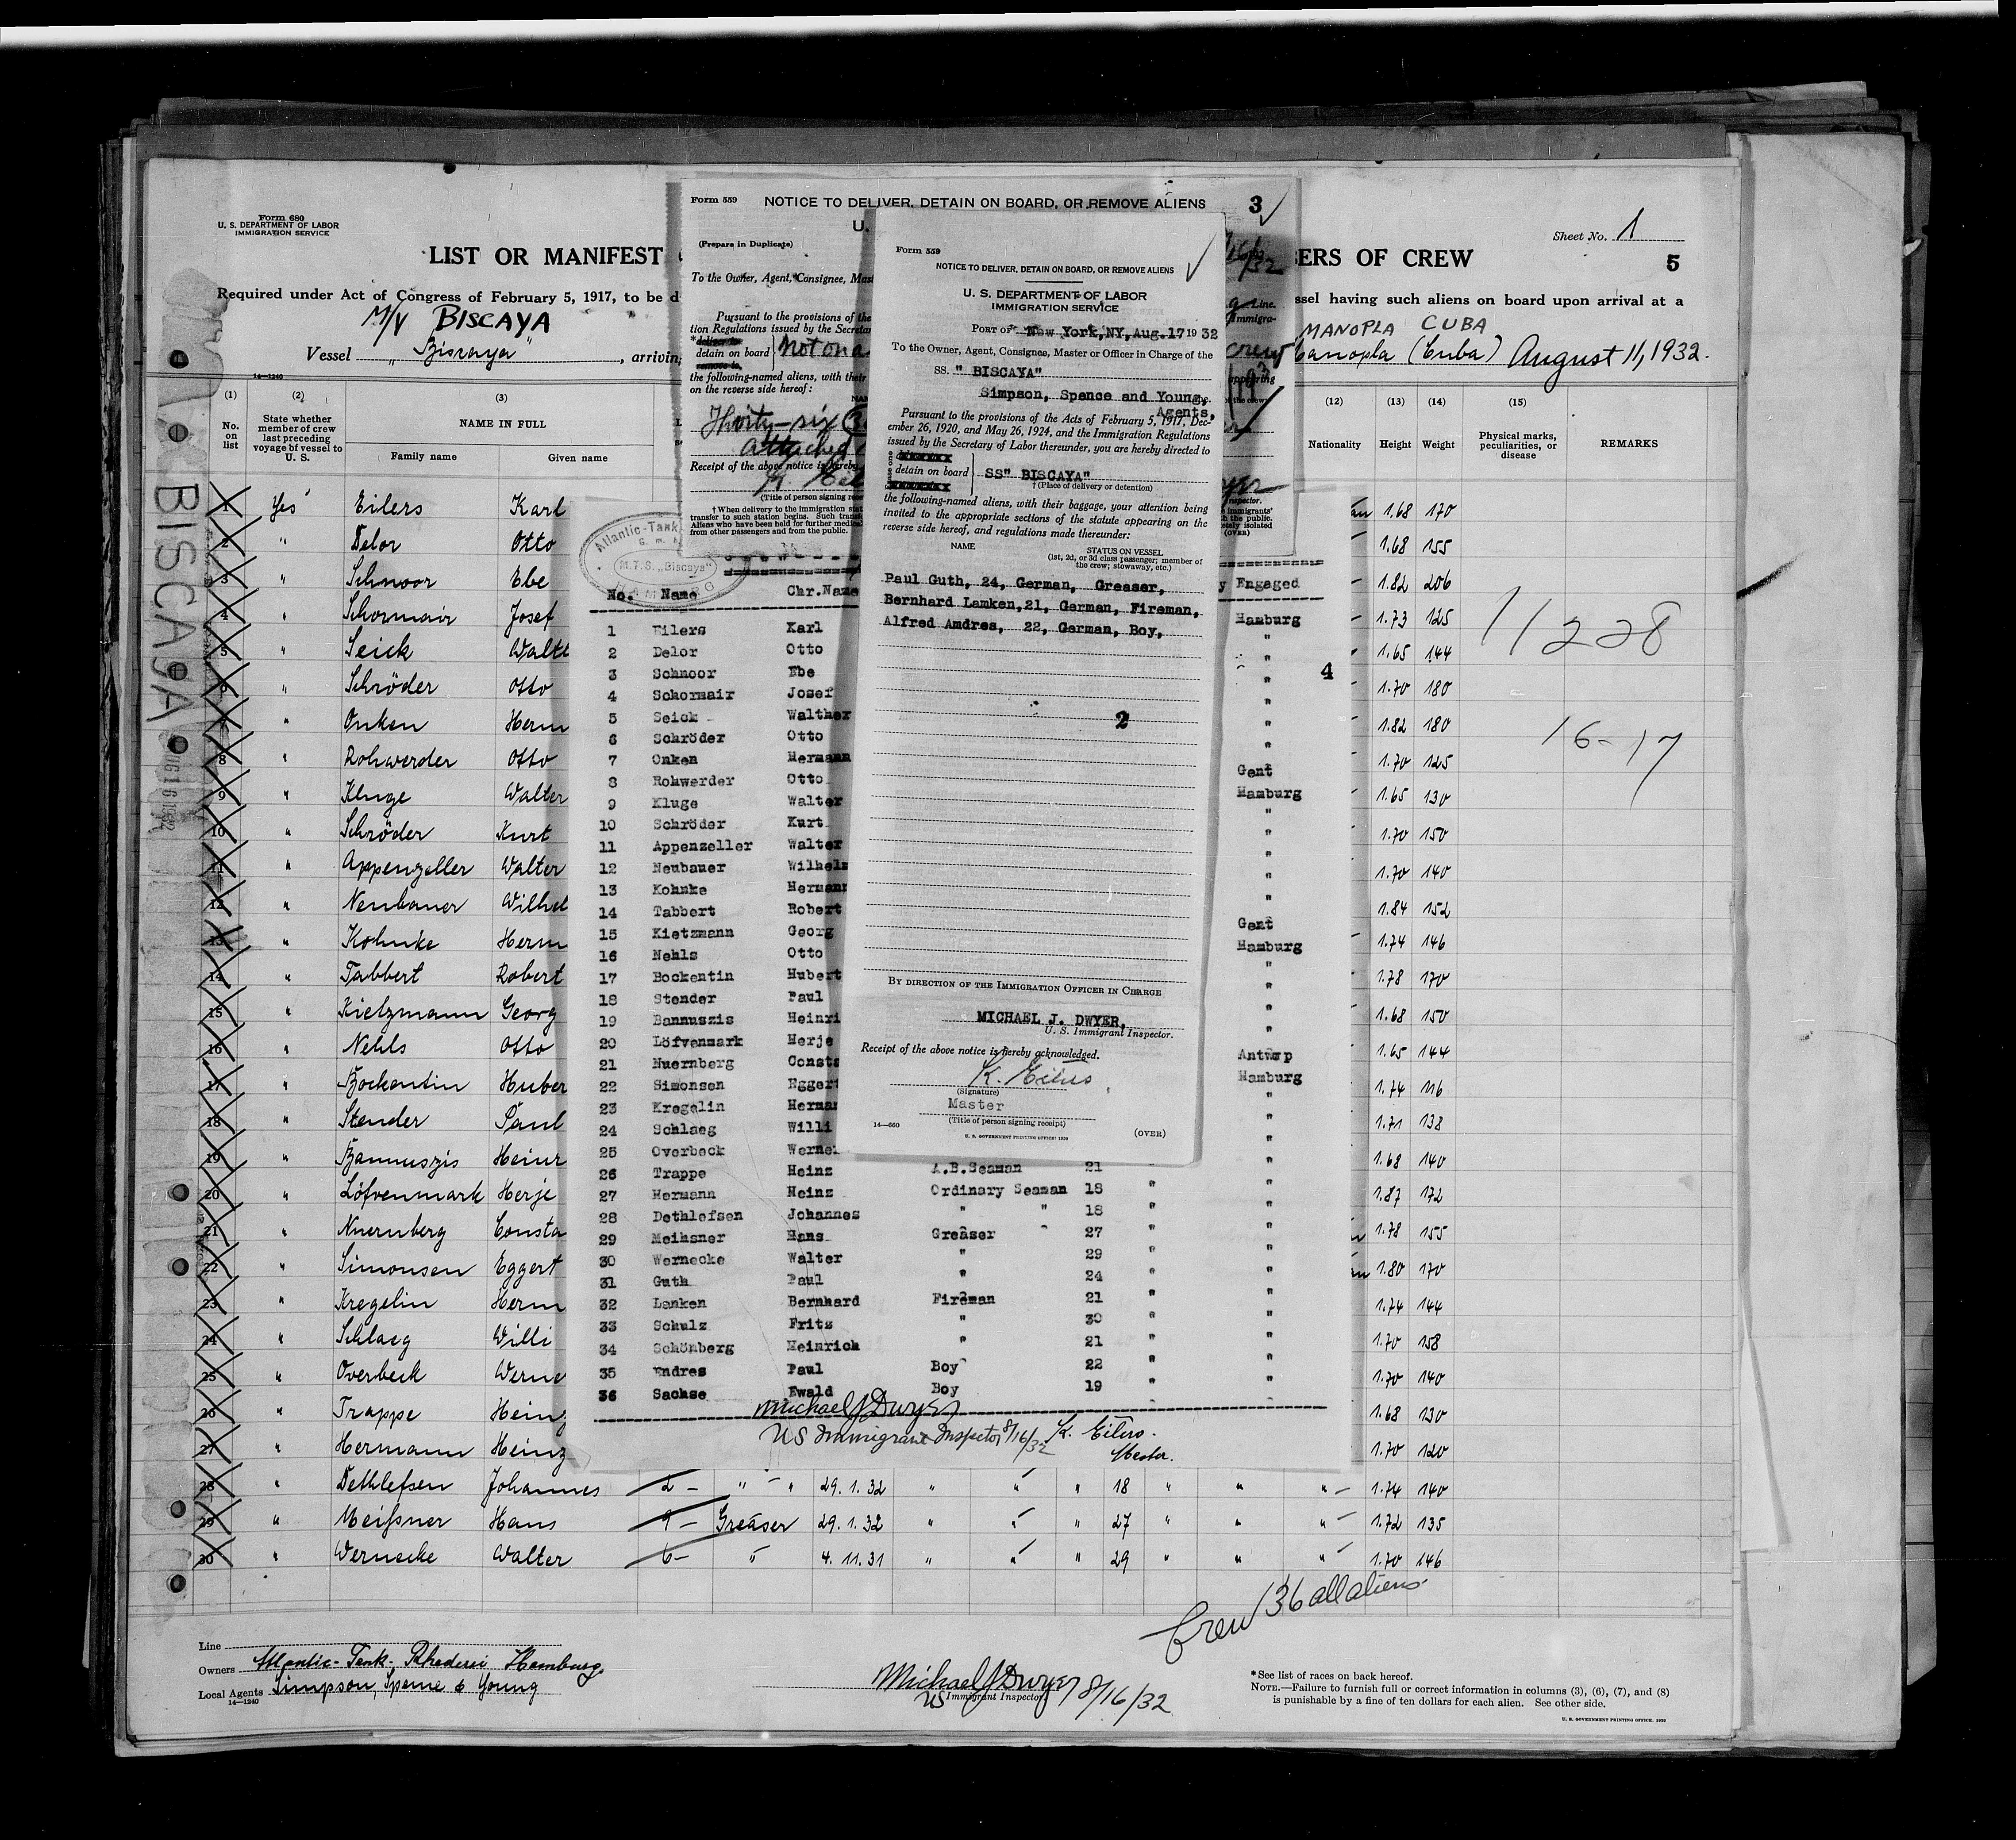 Form 680
U. S. DEPARTMENT OF LABOR
IMMIGRATION SERVICE
LIST OR MANIFEST
ERS OF CREW
Sheet No. 1
5
Required under Act of Congress of February 5, 1917, to be d
ssel having such aliens on board upon arrival at a
M/V BISCAYA
MANOPLA CUBA
Vessel „Biscaya", arriving
Manopla (Cuba) August 11, 1932.
14—1240
(1) (2) (3) (12) (13) (14) (15)
No. on list
State whether member of crew last preceding voyage of vessel to U. S.
NAME IN FULL
Family name Given name
Nationality Height Weight
Physical marks, peculiarities, or disease
REMARKS
BISCAYA
1 Yes Eilers Karl 1.68 170
2 " Delor Otto 1.68 155
3 " Schnoor Ebe 1.82 206
4 " Schormair Josef 1.73 125
5 " Seick Walt 1.65 144
6 " Schröder Otto 1.70 180
7 " Onken Herm 1.82 180
8 " Rohwerder Otto 1.70 125
9 " Kluge Walter 1.65 130
10 " Schröder Kurt 1.70 150
11 " Appenzeller Walter 1.70 140
12 " Neubauer Wilhel 1.84 152
13 " Kohnke Herm 1.74 146
14 " Tabbert Robert 1.78 170
15 " Kietzmann Georg 1.68 150
16 " Nehls Otto 1.65 144
17 " Bockentin Huber 1.74 116
18 " Stender Paul 1.71 138
19 " Bannuszis Heinr 1.68 140
20 " Löfvenmark Herje 1.87 172
21 " Nuernberg Consta 1.78 155
22 " Simonsen Eggert 1.80 170
23 " Kregelin Herm 1.74 144
24 " Schlaeg Willi 1.70 158
25 " Overbeck Werne 1.70 140
26 " Trappe Heinz 1.68 130
27 " Hermann Heinz 1.70 120
28 " Dethlefsen Johannes 2 - " " 29.1.32 " " " 18 " " " 1.74 140
29 " Meißner Hans 9 - Greaser 29.1.32 " " " 27 " " " 1.72 135
30 " Wernecke Walter 6 - " 4.11.31 " " " 29 " " " 1.70 146
11228
16-17
Crew 36 all aliens
Line
Owners Atlantic-Tank-Rhederei Hamburg.
Local Agents Simpson, Spence & Young
14—1240
Michael J Dwyer 8/16/32
US Immigrant Inspector.
*See list of races on back hereof.
NOTE.—Failure to furnish full or correct information in columns (3), (6), (7), and (8)
is punishable by a fine of ten dollars for each alien. See other side.
U. S. GOVERNMENT PRINTING OFFICE
Form 559
NOTICE TO DELIVER, DETAIN ON BOARD, OR REMOVE ALIENS
3
U.
(Prepare in Duplicate)
To the Owner, Agent, Consignee, Mas
Line.
Pursuant to the provisions of the
tion Regulations issued by the Secretar
Immigra-
deliver to
detain on board
remove to,
Not on a
crew
the following-named aliens, with their
on the reverse side hereof:
Thirty-six
attached
Receipt of the above notice is hereby
K. Eil
(Title of person signing rece
† When delivery to the immigration stat
transfer to such station begins. Such trans
Aliens who have been held for further medica
from other passengers and from the public.
immigrants'
h the public.
etely isolated
(OVER)
Atlantic-Tank
G. m. b
M.T.S. „Biscaya"
HAMBURG
No. Name Chr.Name y Engaged
1 Eilers Karl Hamburg
2 Delor Otto "
4
3 Schnoor Ebe "
4 Schormair Josef "
5 Seick Walther "
6 Schröder Otto "
7 Onken Hermann Gent
8 Rohwerder Otto Hamburg
9 Kluge Walter "
10 Schröder Kurt "
11 Appenzeller Walter "
12 Neubauer Wilhelm "
13 Kohnke Hermann "
14 Tabbert Robert Gent
15 Kietzmann Georg Hamburg
16 Nehls Otto "
17 Bockentin Hubert "
18 Stender Paul "
19 Bannuszis Heinri "
20 Löfvenmark Herje Antwerp
21 Nuernberg Consta Hamburg
22 Simonsen Eggert "
23 Kregelin Herman "
24 Schlaeg Willi "
25 Overbeck Werner "
26 Trappe Heinz A.B.Seaman 21 " "
27 Hermann Heinz Ordinary Seaman 18 " "
28 Dethlefsen Johannes " " 18 " "
29 Meihsner Hans Greaser 27 " "
30 Wernecke Walter " 29 " "
31 Guth Paul " 24 " "
32 Lamken Bernhard Fireman 21 " "
33 Schulz Fritz " 30 " "
34 Schönberg Heinrich " 21 " "
35 Endres Paul Boy 22 " "
36 Sachse Ewald Boy 19 " "
Michael J Dwyer
US Immigrant Inspector 8/16/32
K. Eilers.
Master.
Form 559
NOTICE TO DELIVER, DETAIN ON BOARD, OR REMOVE ALIENS
U. S. DEPARTMENT OF LABOR
IMMIGRATION SERVICE
PORT OF New York,NY,Aug.17 1932
To the Owner, Agent, Consignee, Master or Officer in Charge of the
SS. " BISCAYA"
Simpson, Spence and Young,
Agents,
Pursuant to the provisions of the Acts of February 5, 1917, Dec-
ember 26, 1920, and May 26, 1924, and the Immigration Regulations
issued by the Secretary of Labor thereunder, you are hereby directed to
detain on board SS" BISCAYA"
† (Place of delivery or detention)
the following-named aliens, with their baggage, your attention being
invited to the appropriate sections of the statute appearing on the
reverse side hereof, and regulations made thereunder:
NAME
STATUS ON VESSEL
(1st, 2d, or 3d class passenger; member of
the crew; stowaway, etc.)
Paul Guth, 24, German, Greaser,
Bernhard Lamken,21, German, Fireman,
Alfred Amdres, 22, German, Boy,
2
BY DIRECTION OF THE IMMIGRATION OFFICER IN CHARGE
MICHAEL J. DWYER,
U. S. Immigrant Inspector.
Receipt of the above notice is hereby acknowledged.
K. Eilers
(Signature)
Master
(Title of person signing receipt)
14—660
U. S. GOVERNMENT PRINTING OFFICE
(OVER)